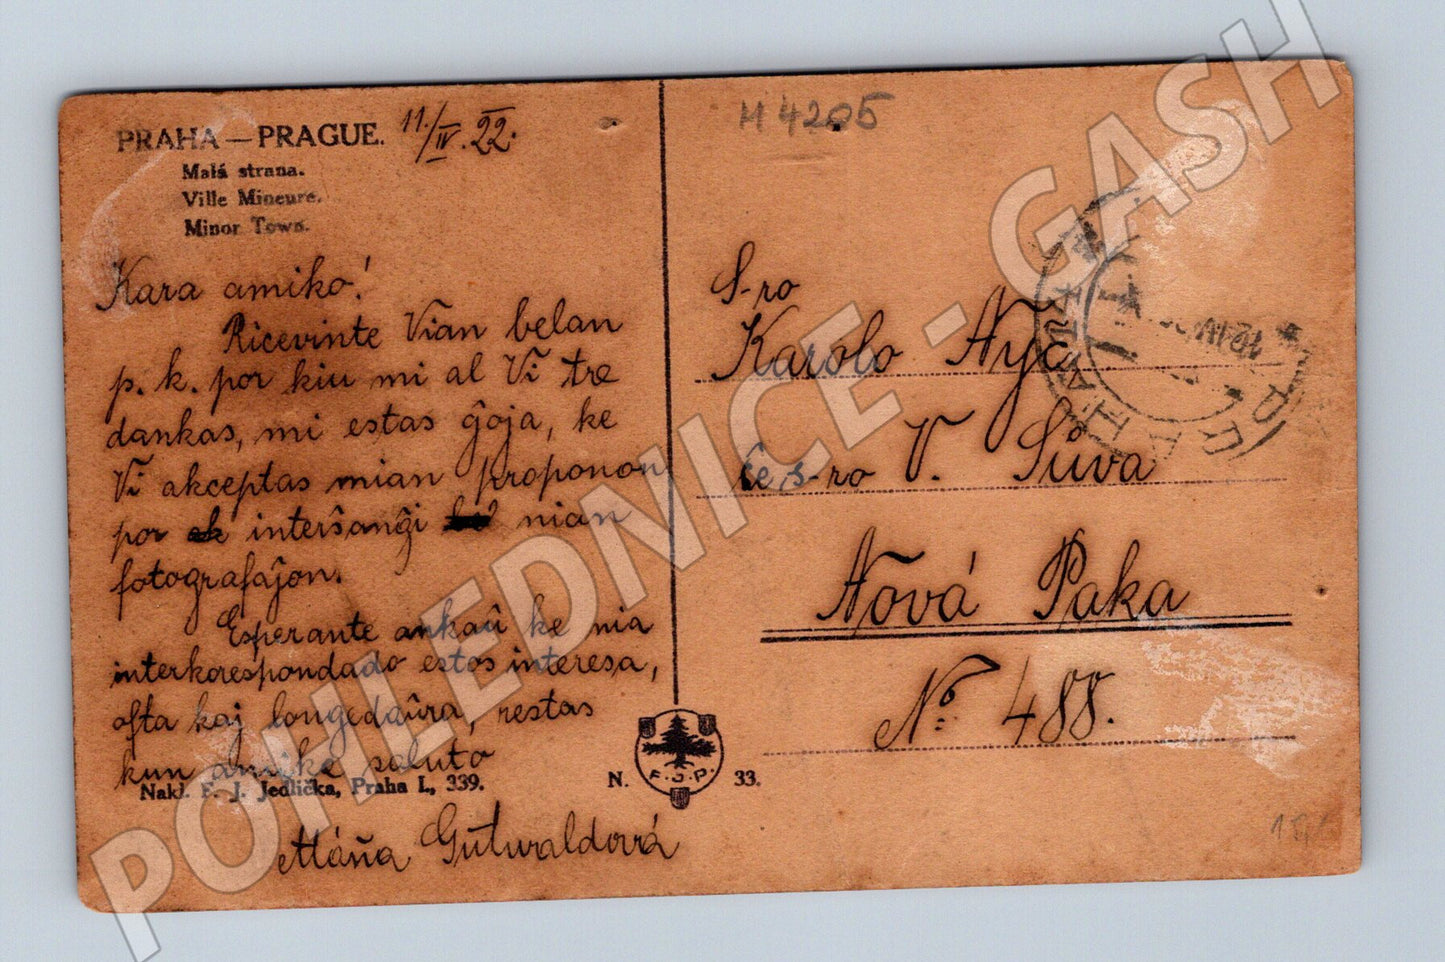 PRAHA — PRAGUE. 11./IV. 22.
Malá strana.
Ville Mineure.
Minor Town.
Kara amiko!
Ricevinte Vian belan
p. k. por kiu mi al Vi tre
dankas, mi estas ĝoja, ke
Vi akceptas mian proponon
por interŝanĝi nian
fotografaĵon.
Esperante ankaŭ ke nia
interkorespondado estos interesa,
ofta kaj longedaŭra, restas
kun amike saluto
Nakl. F. J. Jedlička, Praha I., 339.
Máňa Gutwaldová
N. F. J. P. 33.
H 4205
S-ro
Karolo Ayč
ĉe s-ro V. Sůva
Nová Paka
No. 488.
PRAHA
POHLEDNICE - GASH